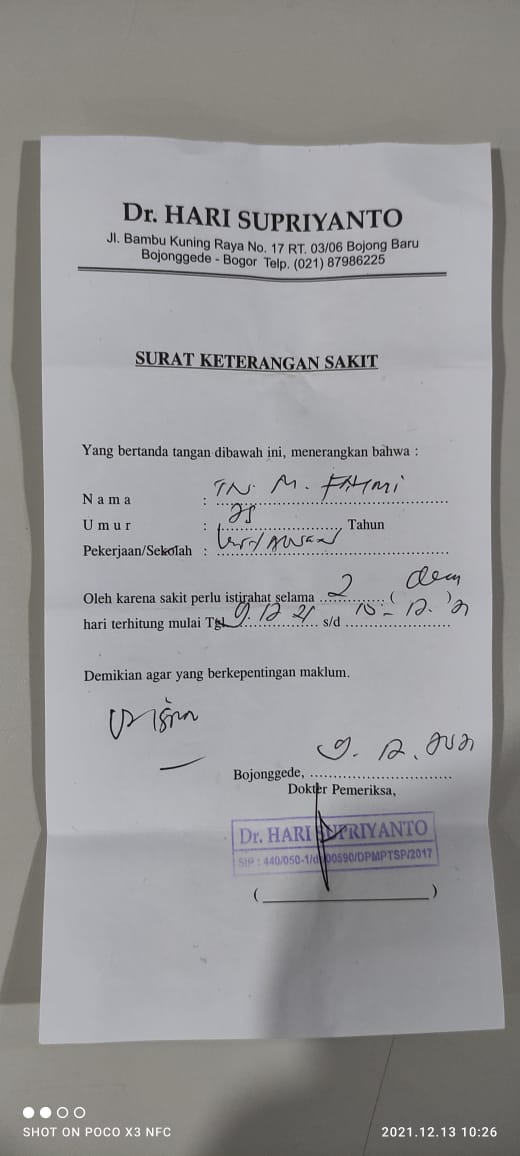 Dr. HARI SUPRIYANTO
Jl. Bambu Kuning Raya No. 17 RT. 03/06 Bojong Baru
Bojonggede - Bogor Telp. (021) 87986225
SURAT KETERANGAN SAKIT
Yang bertanda tangan dibawah ini, menerangkan bahwa :
Nama : TN. M. FAHMI
Umur : Tahun
Pekerjaan/Sekolah :
Oleh karena sakit perlu istirahat selama 2 ( )
hari terhitung mulai Tgl 9. 12 21 s/d 10 - 12. '21
Demikian agar yang berkepentingan maklum.
Bojonggede, 9. 12. 2021
Dokter Pemeriksa,
Dr. HARI SUPRIYANTO
SIP : 440/050-1/ 00590/DPMPTSP/2017
( )
SHOT ON POCO X3 NFC
2021.12.13 10:26